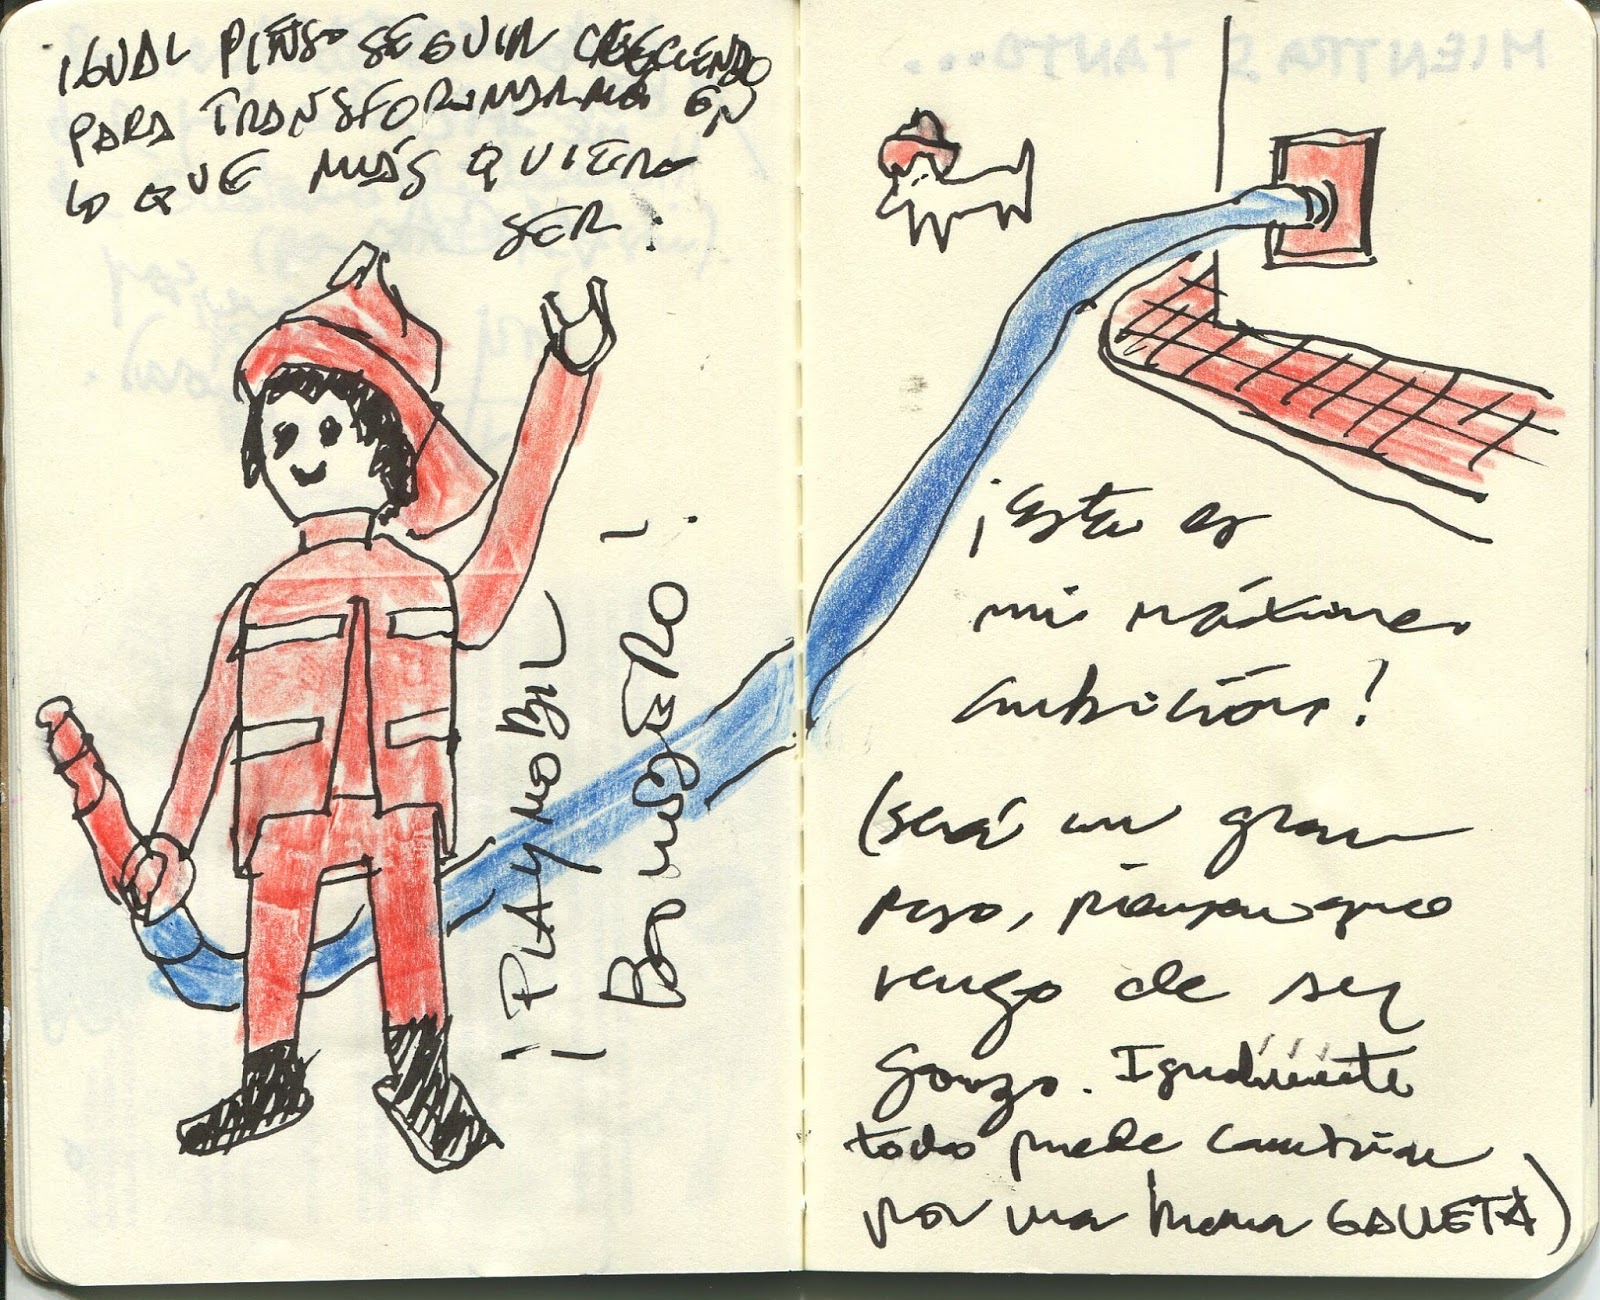 IGUAL PIENSO SEGUIR CRECIENDO
PARA TRANSFORMARME EN
LO QUE MÁS QUIERO
SER:
¡PLAYMOBIL
¡BOMBERO!
MIENTRAS TANTO...
¡esta es
mi máxima
ambición!
(será un gran
paso, piensen que
vengo de ser
gonzo. Igualmente
todo puede cambiar
por una buena GALLETA)